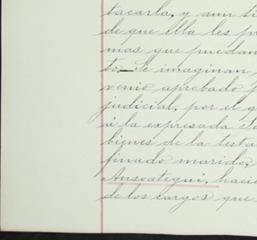 tacarla, y aun ti
de que ella les pr
mas que puedan
to. Se imaginan
venio aprobado p
judicial, por el q
á la expresada Se
bienes de la testa
finado marido,
Ansoategui, haci
de los cargos que